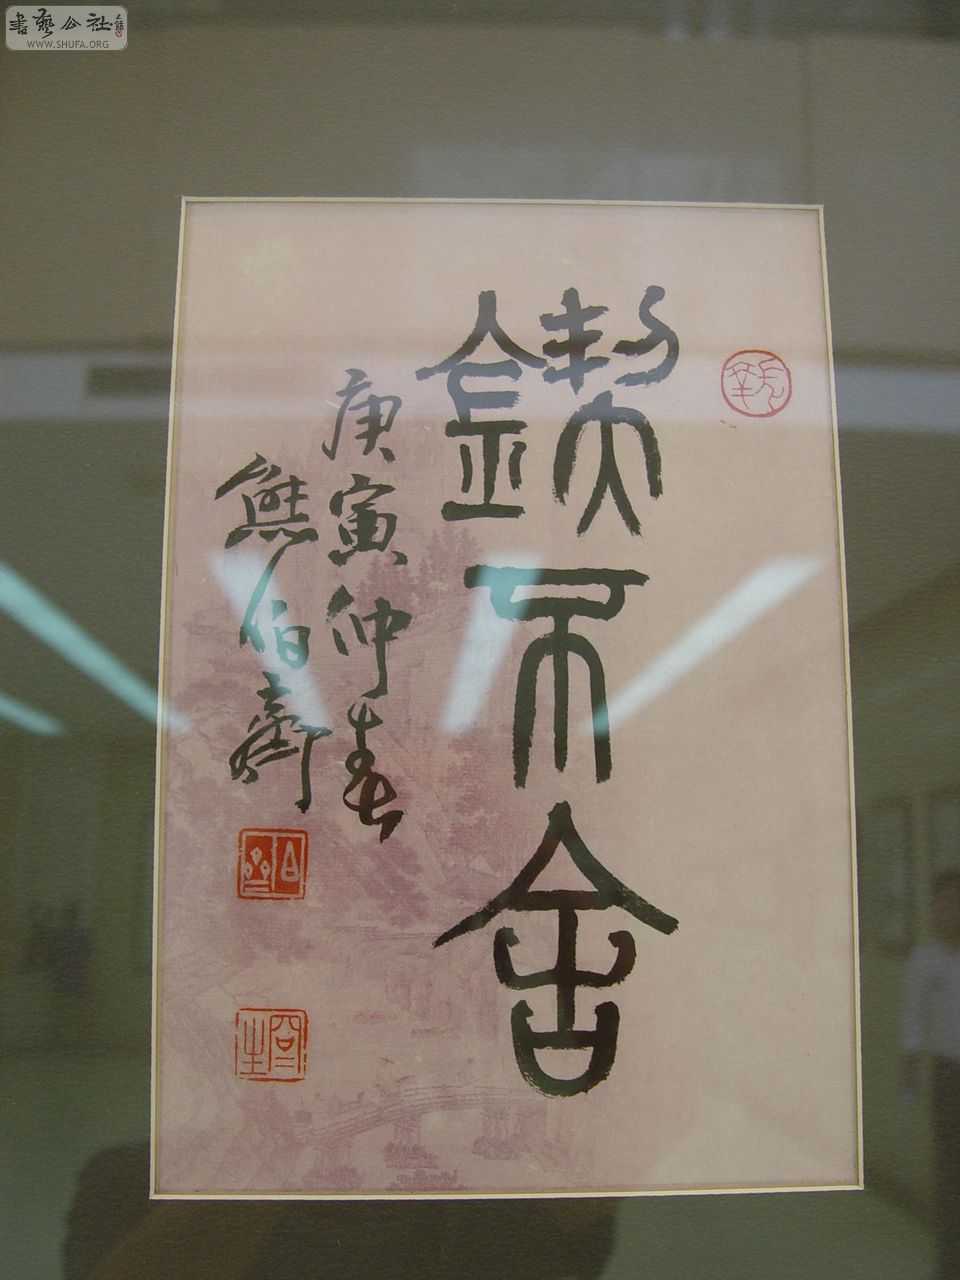 書藝公社
WWW.SHUFA.ORG
鍥不舍
庚寅仲春
熊伯齊